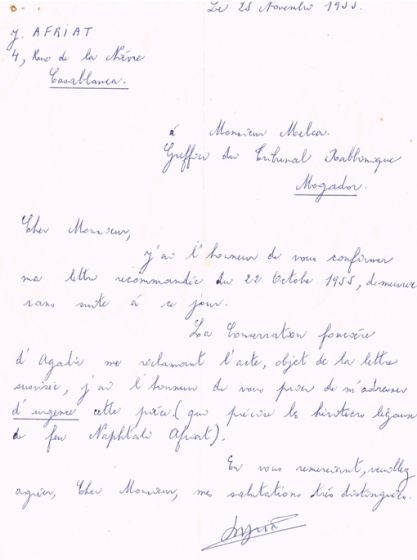 Le 25 Novembre 1955.
J. AFRIAT
4, Rue de la Nièvre
Casablanca.
à Monsieur Melca.
Greffier du Tribunal Rabbinique
Mogador.
Cher Monsieur,
j'ai l'honneur de vous confirmer
ma lettre recommandée du 22 Octobre 1955, demeurée
sans suite à ce jour.
La Conservation foncière
d'Agadir me réclamant l'acte, objet de la lettre
susvisée, j'ai l'honneur de vous prier de m'adresser
d'urgence cette pièce (qui précise les héritiers légaux
de feu Naphtali Afriat).
En vous remerciant, veuillez
agréer, Cher Monsieur, mes salutations très distinguées.